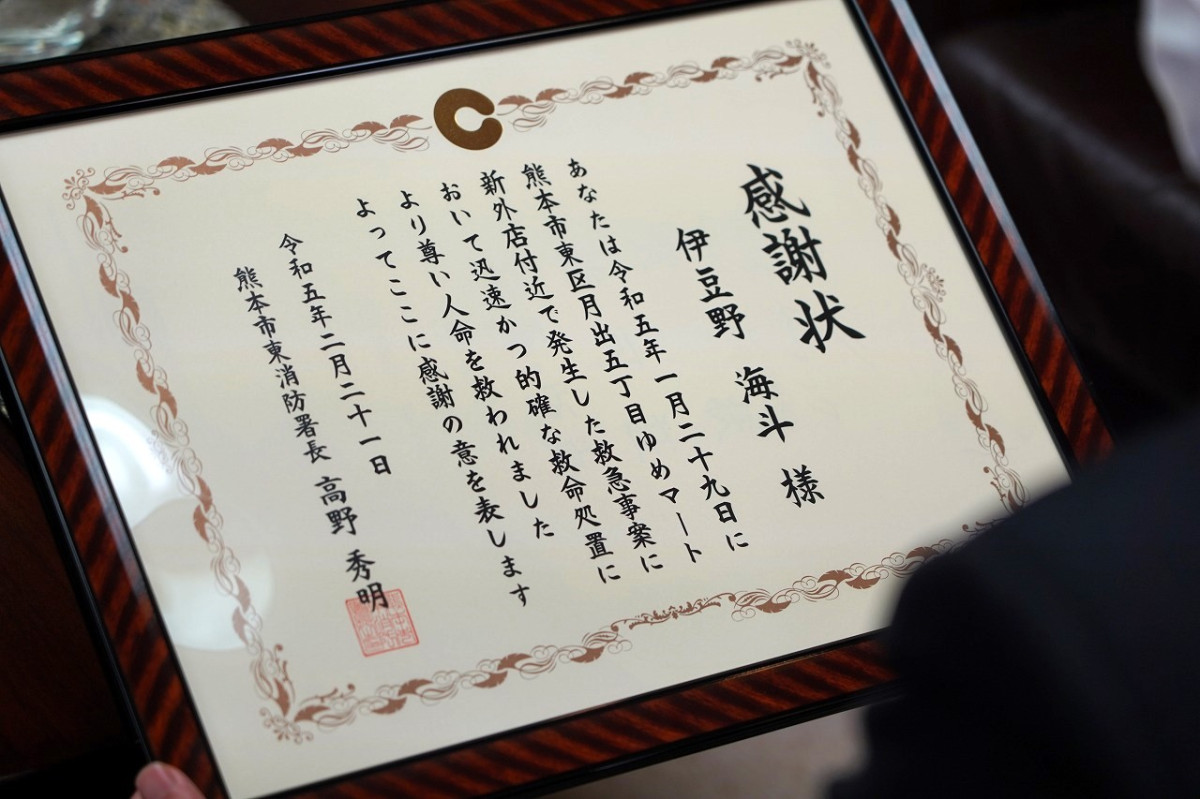 感謝状
伊豆野 海斗 様
あなたは令和五年一月二十九日に
熊本市東区月出五丁目ゆめマート
新外店付近で発生した救急事案に
おいて迅速かつ的確な救命処置に
より尊い人命を救われました
よってここに感謝の意を表します
令和五年二月二十一日
熊本市東消防署長 高野 秀明